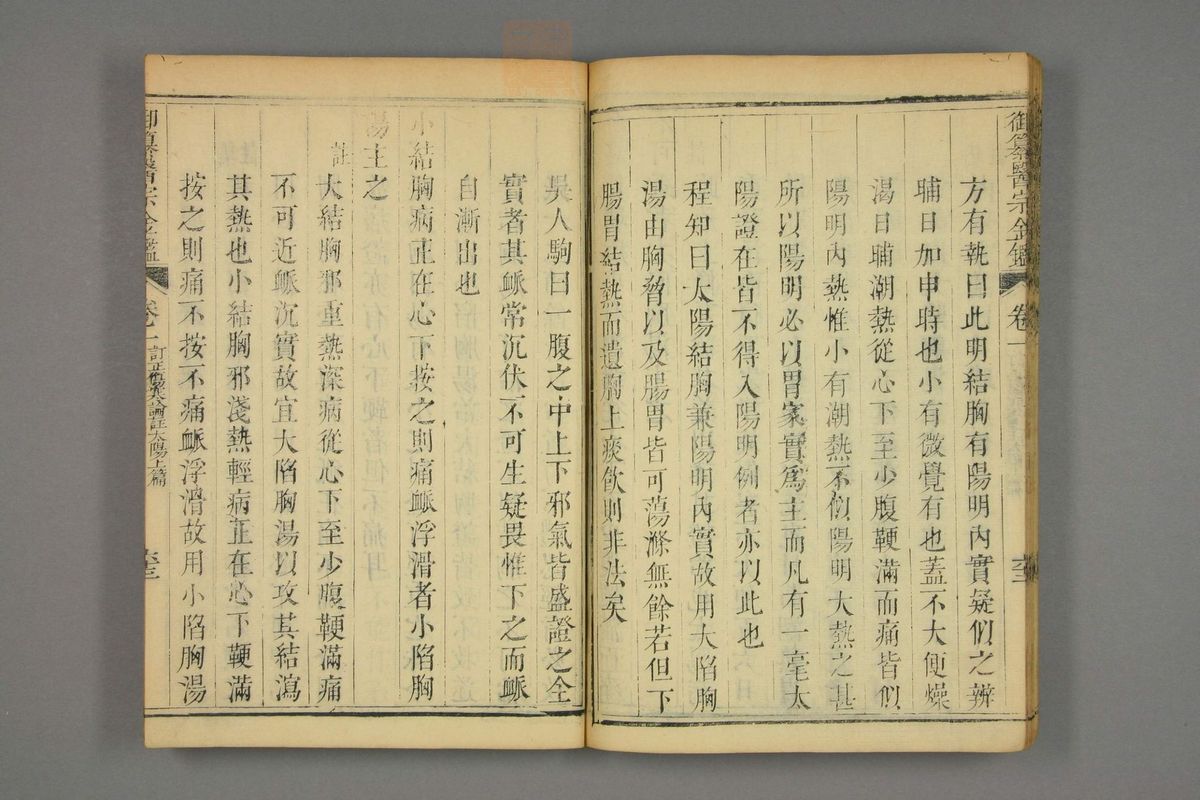 御纂醫宗金鑑 卷一 六三
方有執曰此明結胸有陽明內實疑似之辨
晡日加申時也小有微覺有也蓋不大便燥
渴日晡潮熱從心下至少腹鞕滿而痛皆似
陽明內熱惟小有潮熱不似陽明大熱之甚
所以陽明必以胃家實爲主而凡有一毫太
陽證在皆不得入陽明例者亦以此也
程知曰太陽結胸兼陽明內實故用大陷胸
湯由胸脅以及腸胃皆可蕩滌無餘若但下
腸胃結熱而遺胸上痰飲則非法矣
吳人駒曰一腹之中上下邪氣皆盛證之全
實者其脈常沉伏不可生疑畏惟下之而脈
自漸出也
小結胸病正在心下按之則痛脈浮滑者小陷胸
湯主之
註 大結胸邪重熱深病從心下至少腹鞕滿痛
不可近脈沉實故宜大陷胸湯以攻其結瀉
其熱也小結胸邪淺熱輕病正在心下鞕滿
按之則痛不按不痛脈浮滑故用小陷胸湯
御纂醫宗金鑑 卷一 訂正傷寒論註太陽上篇 六三